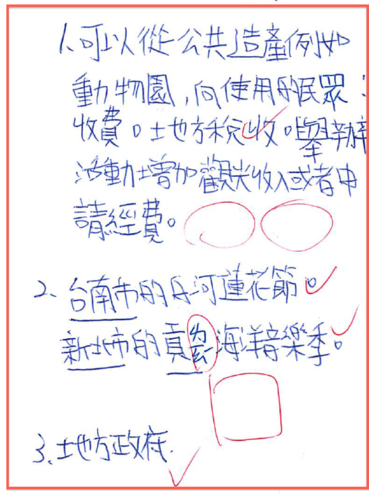 1.可以從公共造產例如
動物園，向使用的民眾
收費。土地方稅收。舉辦
活動增加觀光收入或者申
請經費。
2、台南市的白河蓮花節。
新北市的貢寮海洋音樂季。
3.土地方政府.